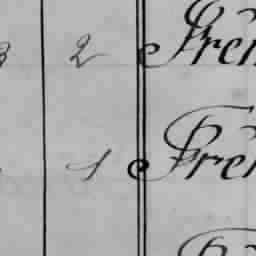 3 2 Fren
1 Fren